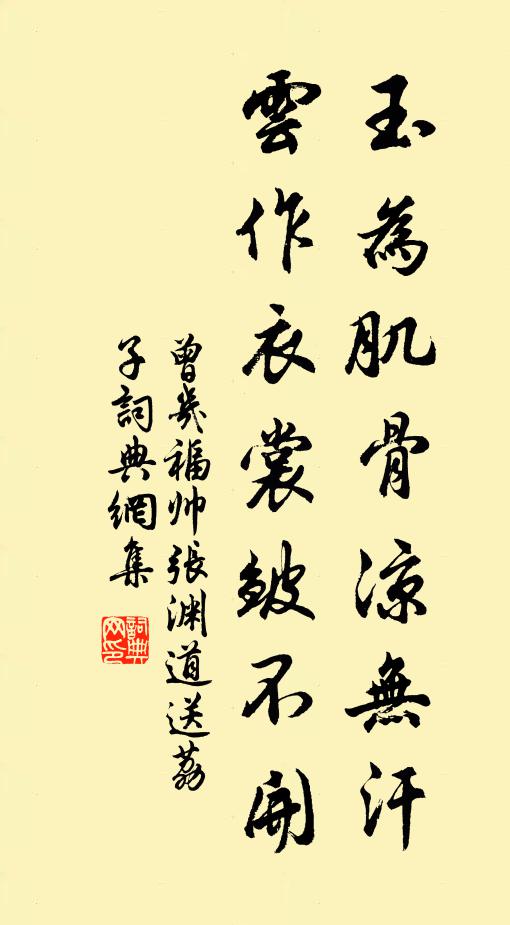 玉為肌骨涼無汗
雲作衣裳皺不開
曾幾福帅張渊道送荔
子詞典網集
詞典网印